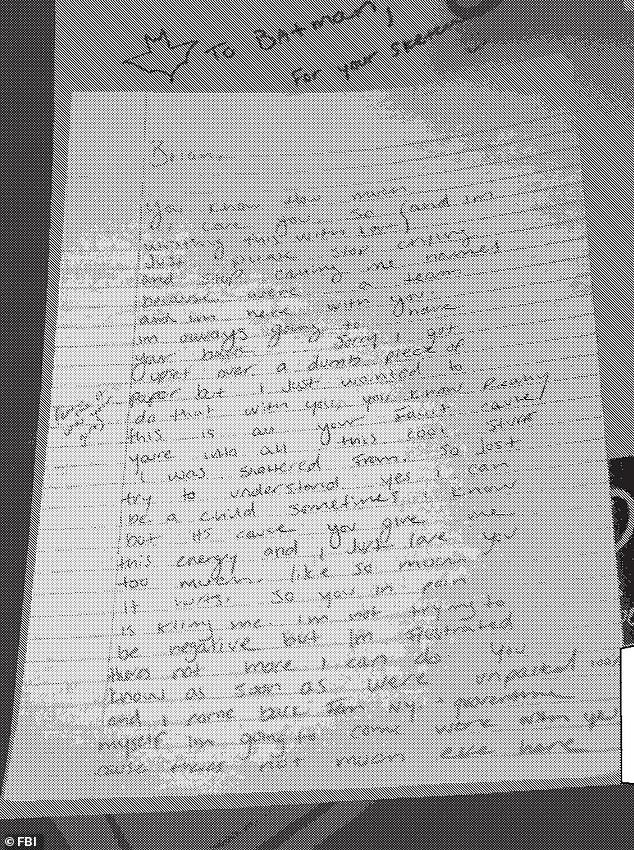 To Batman,
For your
Brian.
You know how much
I care you, so (and im
writing this with love)
Just please stop crying
and stop calling me names
because were a team
and im here with you
im always going to have
your back. Sorry i got
upset over a dumb piece of
paper but i just wanted to
do that with you, you know
this is all your fault cause
youre into all this cool stuff
i was sheltered from. So Just
try to understand yes i can
be a child sometimes i know
but its cause you give me
this energy and i Just love you
too much. like so much
it hurts. so you in pain
is killing me. im not trying to
be negative but Im frustrated
theres not more i can do
know as soon as were unpacked
and i come back from NY,
myself im going to come work with you
cause theres not much else here
© FBI